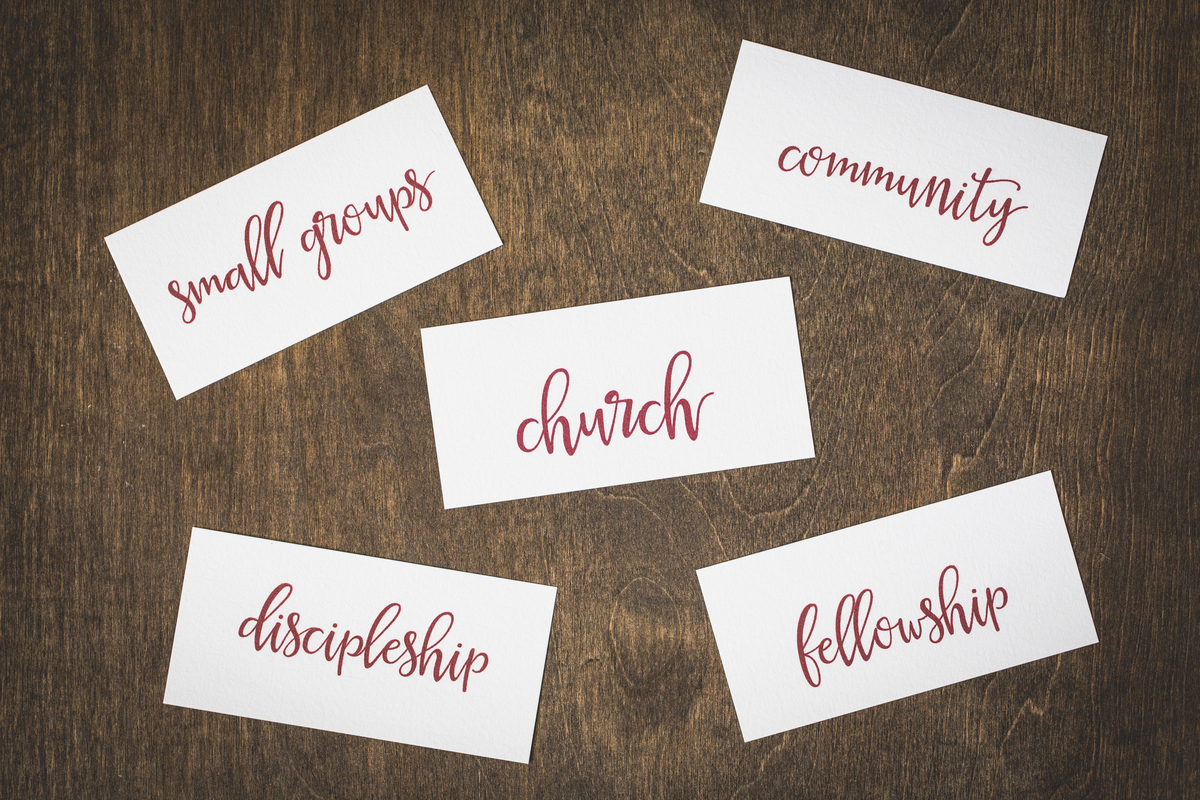 small groups
community
church
discipleship
fellowship